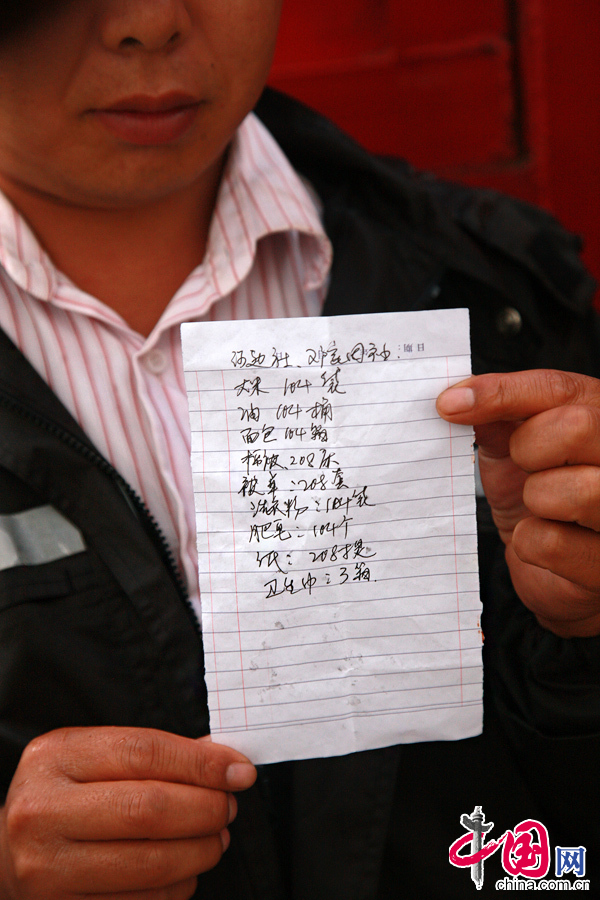 大米 104袋
油 104桶
面包 104箱
棉被 208床
被单:208套
洗衣粉:104袋
肥皂:104个
纸:208提
卫生巾:3箱
中国网
www.china.com.cn